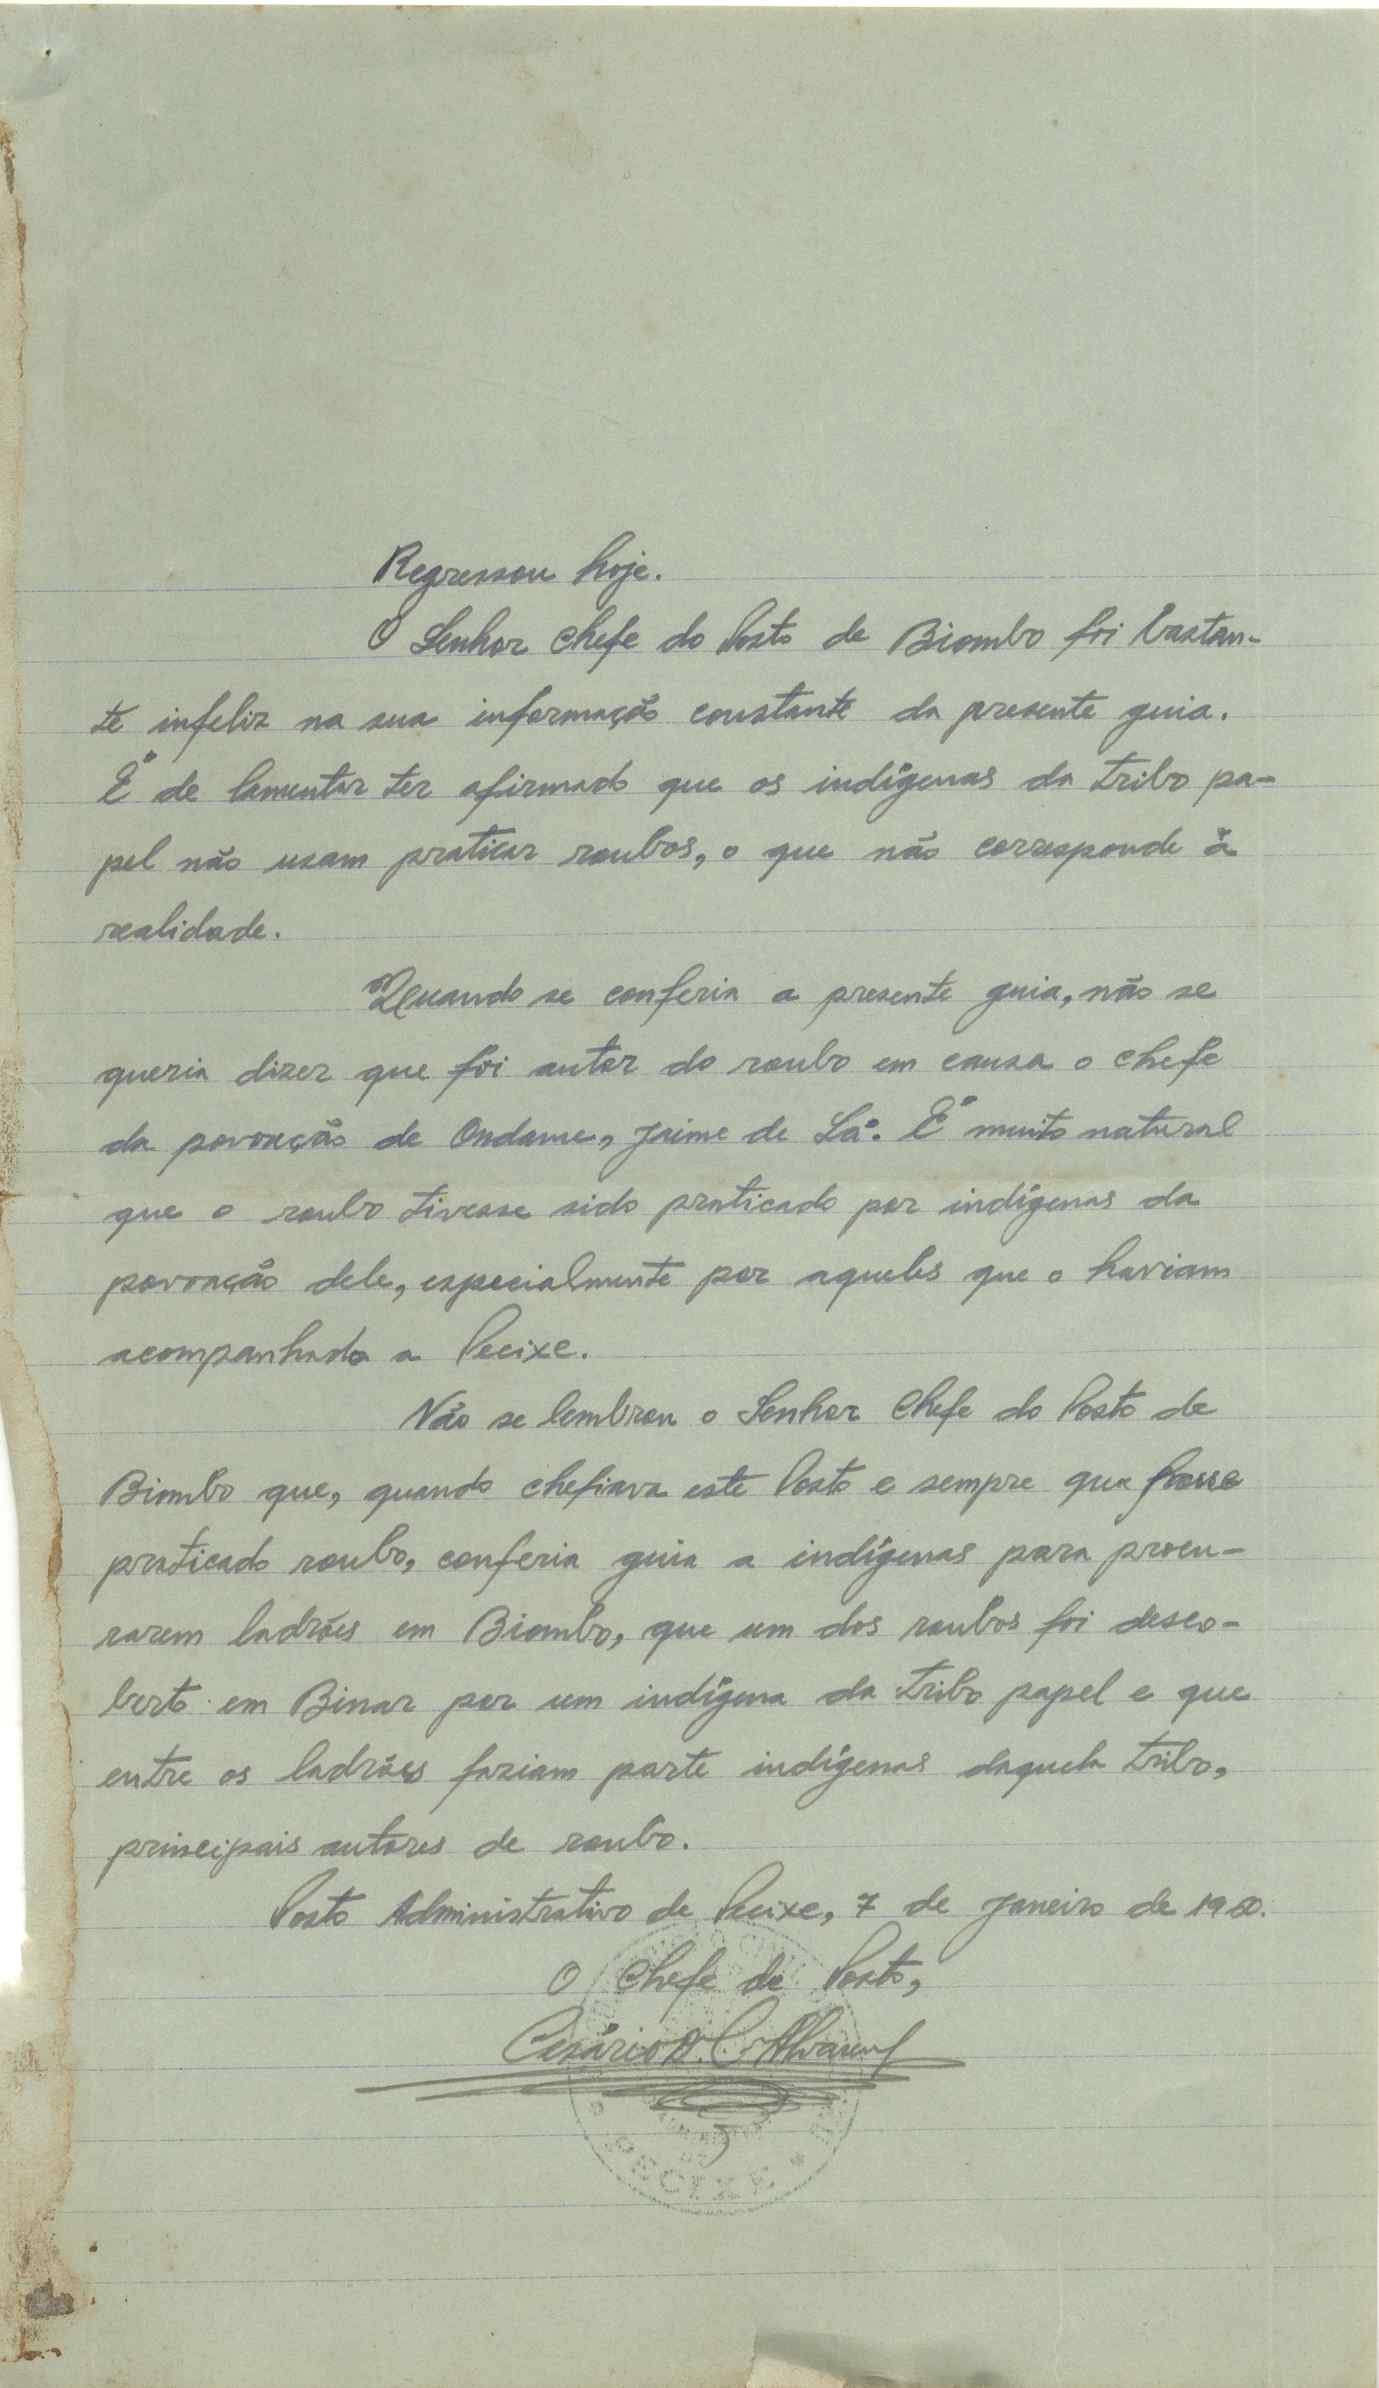 Regressou hoje.
O Senhor Chefe do Posto de Biombo foi bastan-
te infeliz na sua informação constante da presente guia.
É de lamentar ter afirmado que os indígenas da tribo pa-
pel não usam praticar roubos, o que não corresponde à
realidade.
Quando se conferia a presente guia, não se
queria dizer que foi autor do roubo em causa o chefe
da povoação de Ondame, Jaime de Sá. É muito natural
que o roubo tivesse sido praticado por indígenas da
povoação dele, especialmente por aqueles que o haviam
acompanhado a Pecixe.
Não se lembrou o Senhor Chefe do Posto de
Biombo que, quando chefiava este Posto e sempre que fosse
praticado roubo, conferia guia a indígenas para procu-
rarem ladrões em Biombo, que um dos roubos foi desco-
berto em Binar por um indígena da tribo papel e que
entre os ladrões faziam parte indígenas daquela tribo,
principais autores de roubo.
Posto Administrativo de Pecixe, 7 de Janeiro de 1960.
O Chefe do Posto,
Cesário D. C. Alvarenga
PECIXE